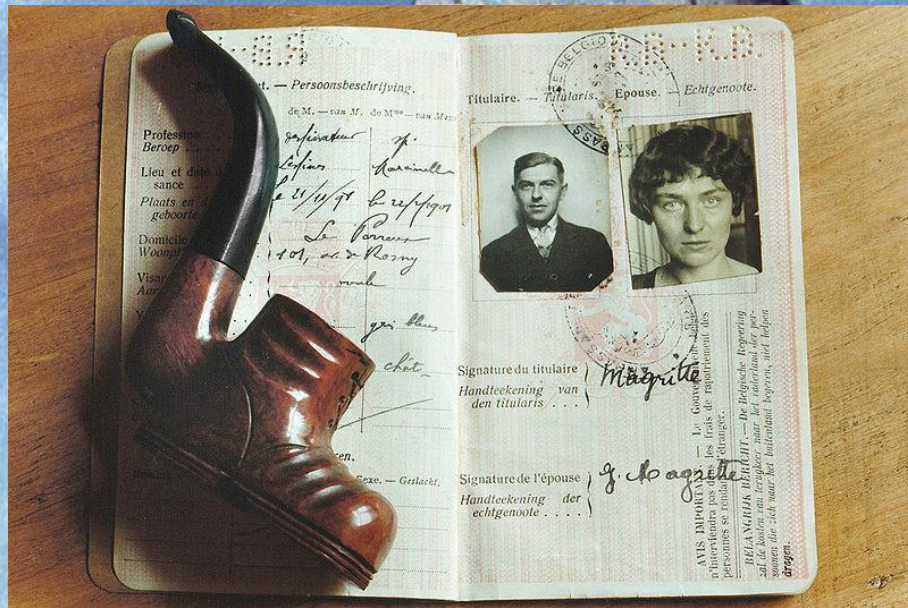 — Persoonsbeschrijving.
de M. — van M. de Mme — van Mevr
Profession
Beroep . .
Lieu et date
sance
Plaats en
geboorte
Lessines Marcinelle
le 21/11/98 le 22/2/1901
Domicile
Le Perreux
101, av. de Rosny
Visa
ovale
gris bleus
chât.
Sexe. — Geslacht.
R.B-K.B.
Titulaire. — Titularis. Epouse. — Echtgenoote.
Signature du titulaire
Magritte
Handteekening van
den titularis . . . .
Signature de l'épouse
G. Magritte
Handteekening der
echtgenoote . . . .
AVIS IMPORTANT. — Le Gouvernement belge
n'interviendra pas dans les frais de rapatriement des
personnes se rendant à l'étranger.
BELANGRIJK BERICHT. — De Belgische Regeering
zal de kosten van terugkeer naar het vaderland der per-
sonen die zich naar het buitenland begeven, niet helpen
dragen.